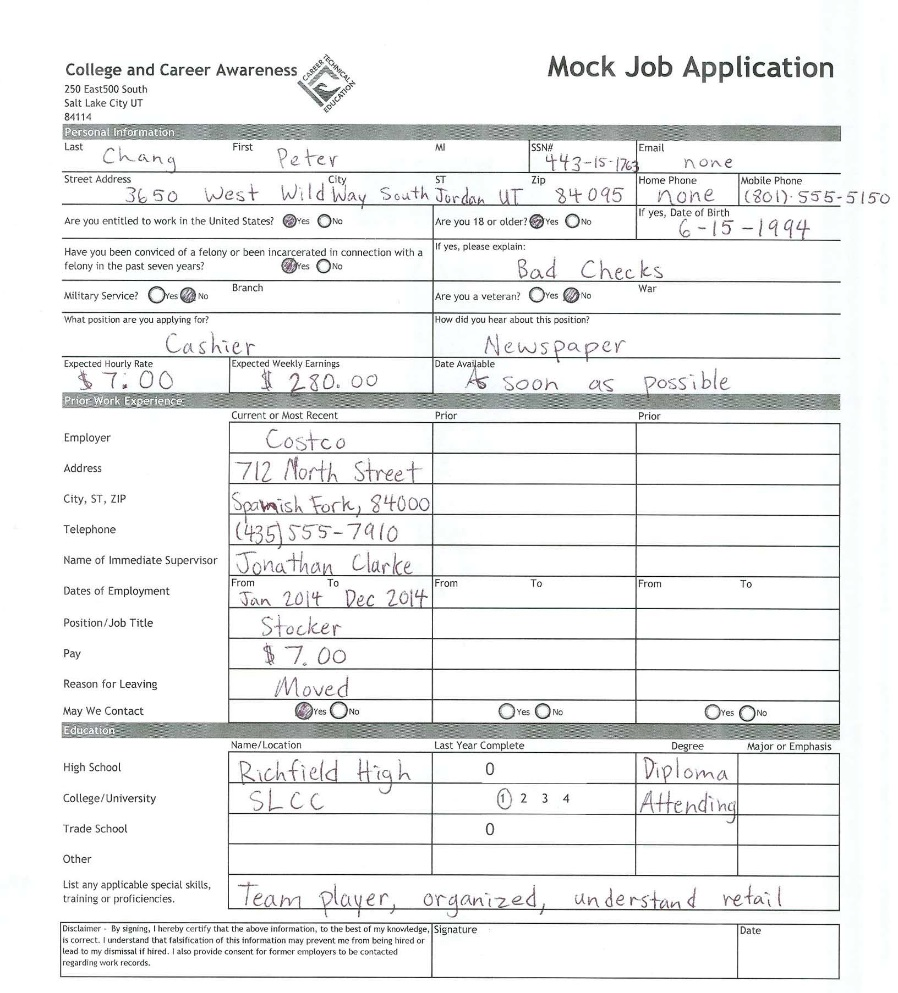 College and Career Awareness
CAREER TECHNICAL EDUCATION
Mock Job Application
250 East500 South
Salt Lake City UT
84114
Personal Information
Last First MI SSN# Email
Chang Peter 443-15-1763 none
Street Address City ST Zip Home Phone Mobile Phone
3650 West Wild Way South Jordan UT 84095 none (801)-555-5150
Are you entitled to work in the United States? Yes No Are you 18 or older? Yes No If yes, Date of Birth
6-15-1994
Have you been conviced of a felony or been incarcerated in connection with a If yes, please explain:
felony in the past seven years? Yes No Bad Checks
Military Service? Yes No Branch Are you a veteran? Yes No War
What position are you applying for? How did you hear about this position?
Cashier Newspaper
Expected Hourly Rate Expected Weekly Earnings Date Available
$ 7.00 $ 280.00 As soon as possible
Prior Work Experience
Current or Most Recent Prior Prior
Employer Costco
Address 712 North Street
City, ST, ZIP Spanish Fork, 84000
Telephone (435) 555-7910
Name of Immediate Supervisor Jonathan Clarke
From To From To From To
Dates of Employment Jan 2014 Dec 2014
Position/Job Title Stocker
Pay $ 7.00
Reason for Leaving Moved
May We Contact Yes No Yes No Yes No
Education
Name/Location Last Year Complete Degree Major or Emphasis
High School Richfield High 0 Diploma
College/University SLCC 1 2 3 4 Attending
Trade School 0
Other
List any applicable special skills,
training or proficiencies. Team player, organized, understand retail
Disclaimer - By signing, I hereby certify that the above information, to the best of my knowledge, Signature Date
is correct. I understand that falsification of this information may prevent me from being hired or
lead to my dismissal if hired. I also provide consent for former employers to be contacted
regarding work records.